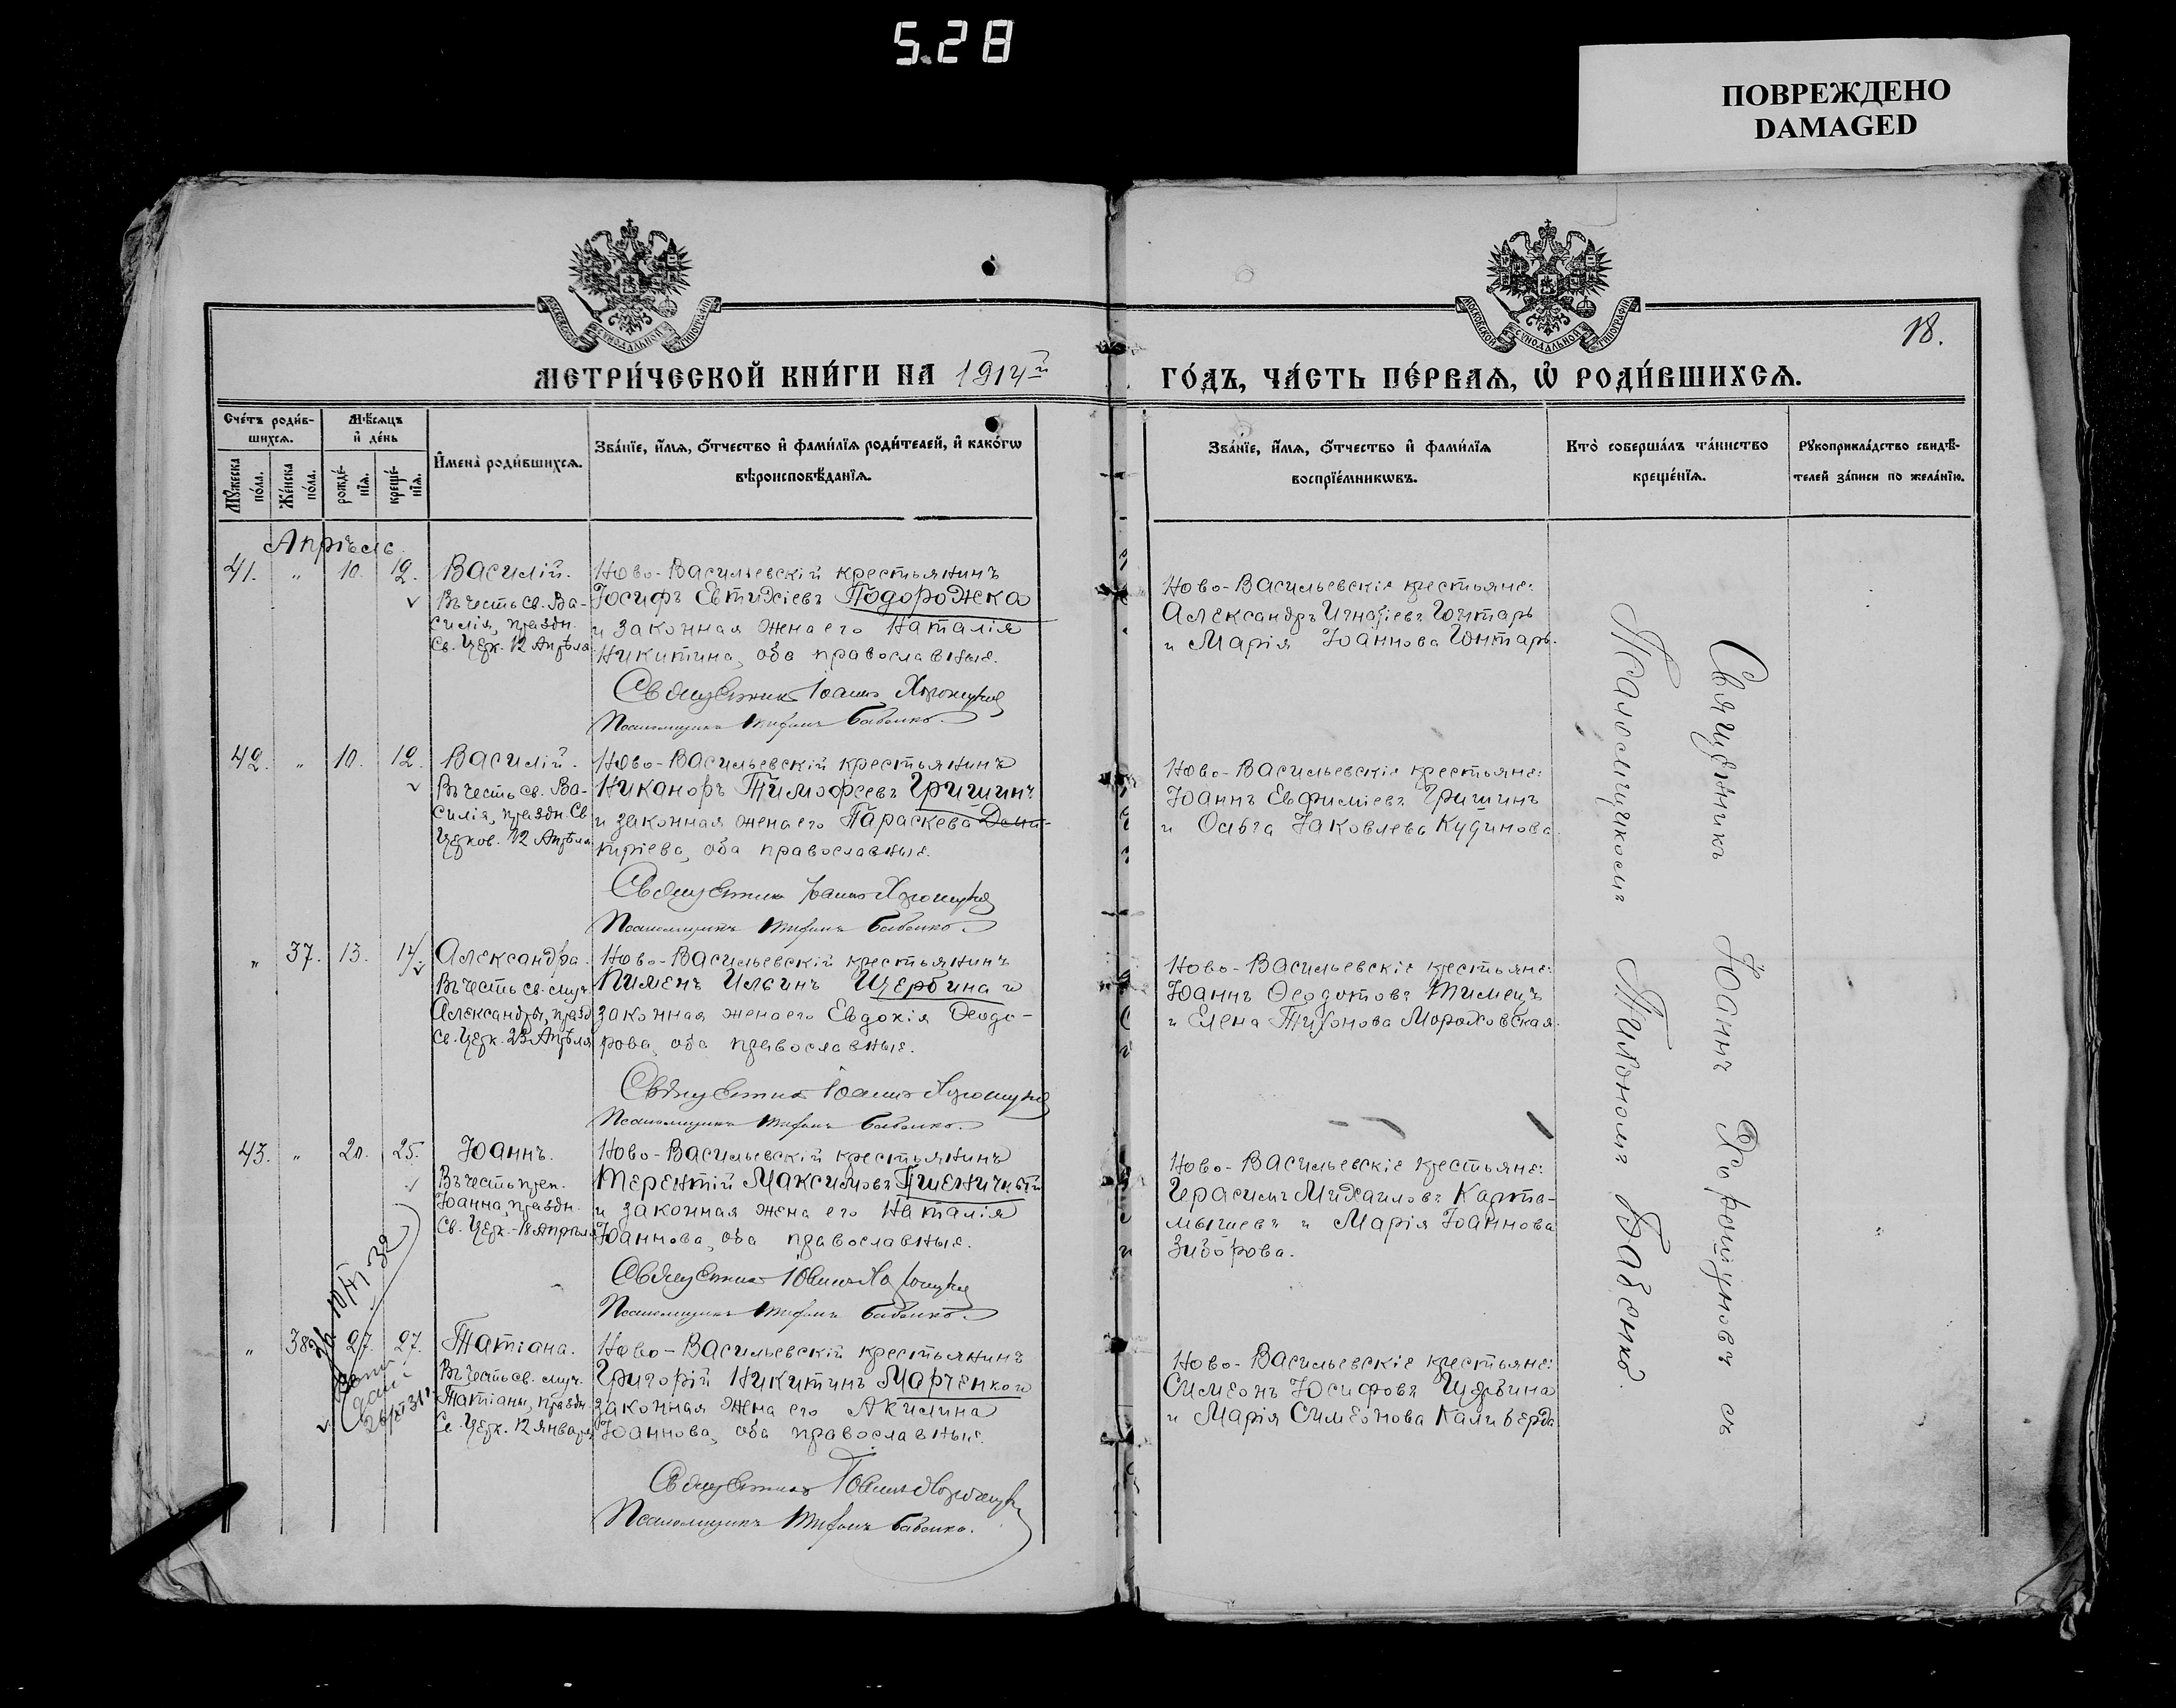 5.28
ПОВРЕЖДЕНО
DAMAGED
МОСКОВСКОЙ СѴНОДАЛЬНОЙ ТИПОГРАФІИ
МОСКОВСКОЙ СѴНОДАЛЬНОЙ ТИПОГРАФІИ
18.
МЕТРИ́ЧЕСКОЙ КНИ́ГИ НА 1914й
ГО́ДЪ, ЧА́СТЬ ПЕ́РВАѦ, Ѡ҆ РОДИ́ВШИХСѦ.
Сче́тъ роди́в-
шихсѧ.
Мѣ́сѧцъ
и҆ де́нь
Мꙋ́жеска
по́ла.
Же́нска
по́ла.
рожде́-
нїѧ.
креще́-
нїѧ.
И҆мена̀ роди́вшихсѧ.
Зва́нїе, и҆́мѧ, ѻ҆́тчество и҆ фами́лїѧ роди́телей, и҆ како́гѡ
вѣроисповѣ́данїѧ.
Зва́нїе, и҆́мѧ, ѻ҆́тчество и҆ фами́лїѧ
воспрїе́мникѡвъ.
Кто̀ соверша́лъ та́инство
креще́нїѧ.
Рꙋкоприкла́дство свидѣ́-
телей за́писи по жела́нїю.
Апрѣль
41. " 10. 12. Василій.
Въ честь св. Ва-
силія, праздн.
Св. Церк. 12 Апрѣля
Ново-Васильевскій крестьянинъ
Іосифъ Евтихіевъ Подорожка
и законная жена его Наталія
Никитина, оба православные.
Священникъ Іоаннъ Хорошунов
Псаломщикъ Тихонъ Бабенко.
Ново-Васильевскіе крестьяне:
Александръ Игнатіевъ Гонтарь
и Марія Іоаннова Гонтарь.
42. " 10. 12. Василій.
Въ честь св. Ва-
силія, праздн. Св
Церков. 12 Апрѣля
Ново-Васильевскій крестьянинъ
Никаноръ Тимофеевъ Гришинъ
и законная жена его Параскева Дими-
тріева, оба православные.
Священникъ Іоаннъ Хорошунов
Псаломщикъ Тихонъ Бабенко.
Ново-Васильевскіе крестьяне:
Іоаннъ Евфиміевъ Гришинъ
и Ольга Іаковлева Кудинова.
" 37. 13. 14. Александра.
Въ честь св. муч.
Александры, празд
Св. Церк. 23 Апрѣля
Ново-Васильевскій крестьянинъ
Пименъ Ильинъ Щербина и
законная жена его Евдокія Ѳеодо-
рова, оба православные.
Священникъ Іоаннъ Хорошунов
Псаломщикъ Тихонъ Бабенко.
Ново-Васильевскіе крестьяне:
Іоаннъ Ѳеодотовъ Тимецъ
и Елена Тихонова Мороховская.
43. " 20. 25. Іоаннъ.
Въ честь преп.
Іоанна, праздн.
Св. Церк. 18 Апрѣля
Ново-Васильевскій крестьянинъ
Терентій Максимовъ Пшеничный
и законная жена его Наталія
Іоаннова, оба православные.
Священникъ Іоаннъ Хорошунов
Псаломщикъ Тихонъ Бабенко.
Ново-Васильевскіе крестьяне:
Герасимъ Михаиловъ Карта-
мышевъ и Марія Іоаннова
Зиборова.
" 38. 27. 27. Татіана.
Въ честь св. муч.
Татіаны, праздн.
Св. Церк. 12 января
Ново-Васильевскій крестьянинъ
Григорій Никитинъ Марченко и
законная жена его Акилина
Іоаннова, оба православные.
Священникъ Іоаннъ Хорошунов
Псаломщикъ Тихонъ Бабенко.
Ново-Васильевскіе крестьяне:
Симеонъ Іосифовъ Щербина
и Марія Симеонова Калиберда.
Священникъ Іоаннъ Хорошуновъ съ
Псаломщикомъ Тихономъ Бабенко.